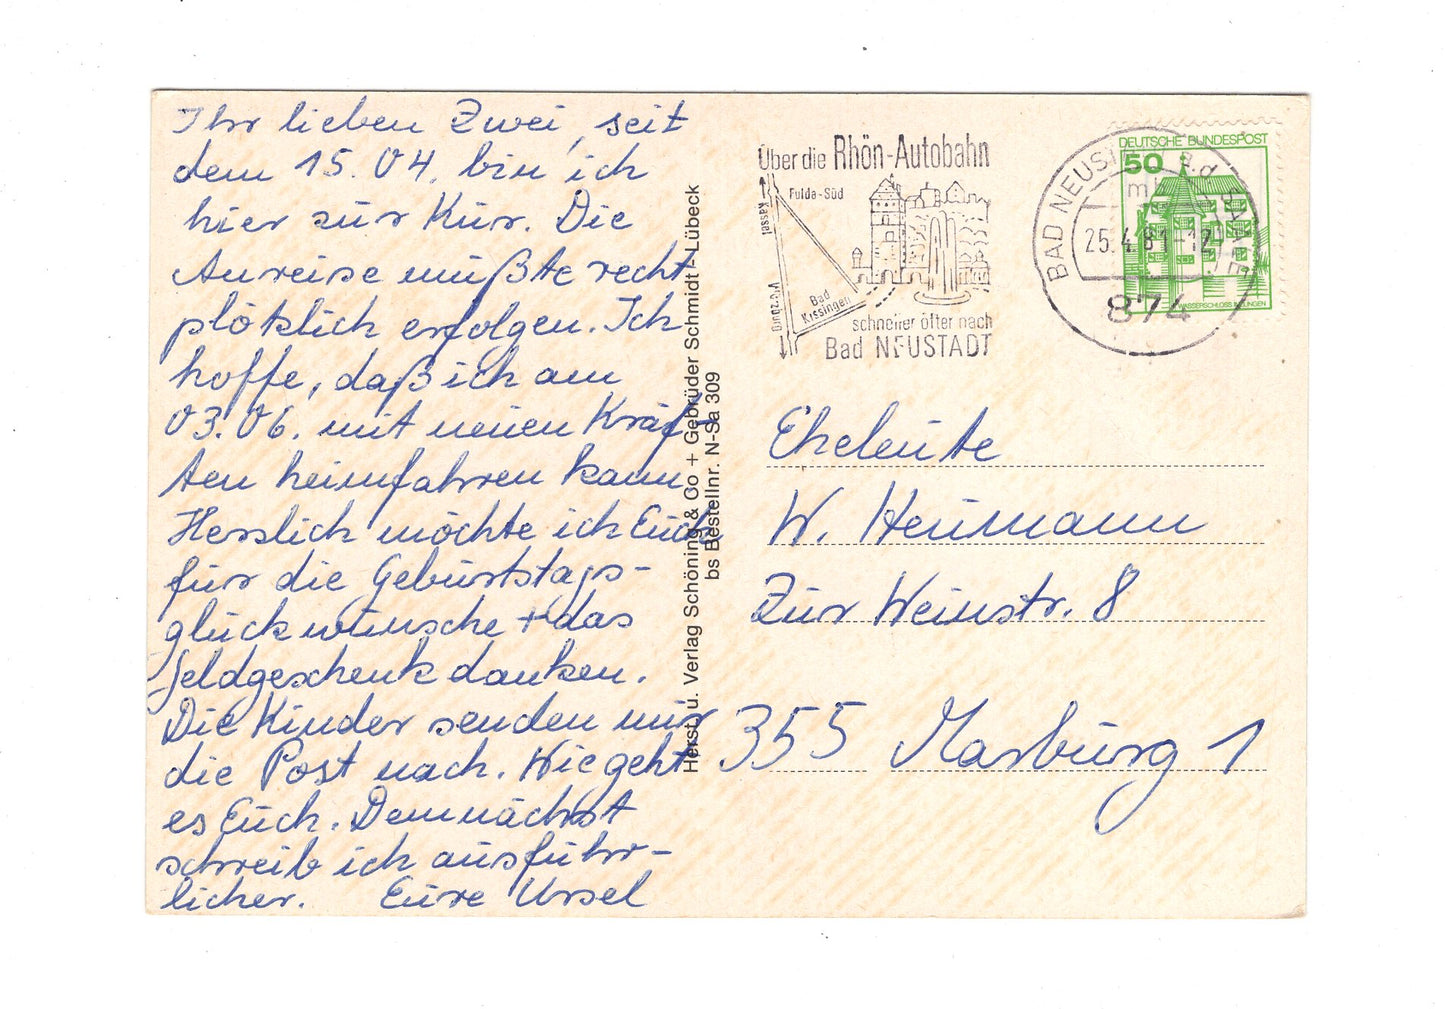 Ihr lieben Zwei, seit
dem 15.04. bin ich
hier zur Kur. Die
Anreise mußte recht
plötzlich erfolgen. Ich
hoffe, daß ich am
03.06. mit neuen Kräf-
ten heimfahren kann
Herzlich möchte ich Euch
für die Geburtstags-
glückwünsche + das
Geldgeschenk danken.
Die Kinder senden mir
die Post nach. Wie geht
es Euch. Demnächst
schreib ich ausführ-
licher. Eure Ursel
Herst. u. Verlag Schöning & Co + Gebrüder Schmidt - Lübeck
bs Bestellnr. N-Sa 309
Über die Rhön-Autobahn
Fulda-Süd
Kassel
Würzburg
Bad
Kissingen
schneller öfter nach
Bad NEUSTADT
BAD NEUSTADT a.d. SAALE
mb
25.4.81-12
874
DEUTSCHE BUNDESPOST
50
WASSERSCHLOSS INZLINGEN
Eheleute
W. Heumann
Zur Weinstr. 8
355 Marburg 1